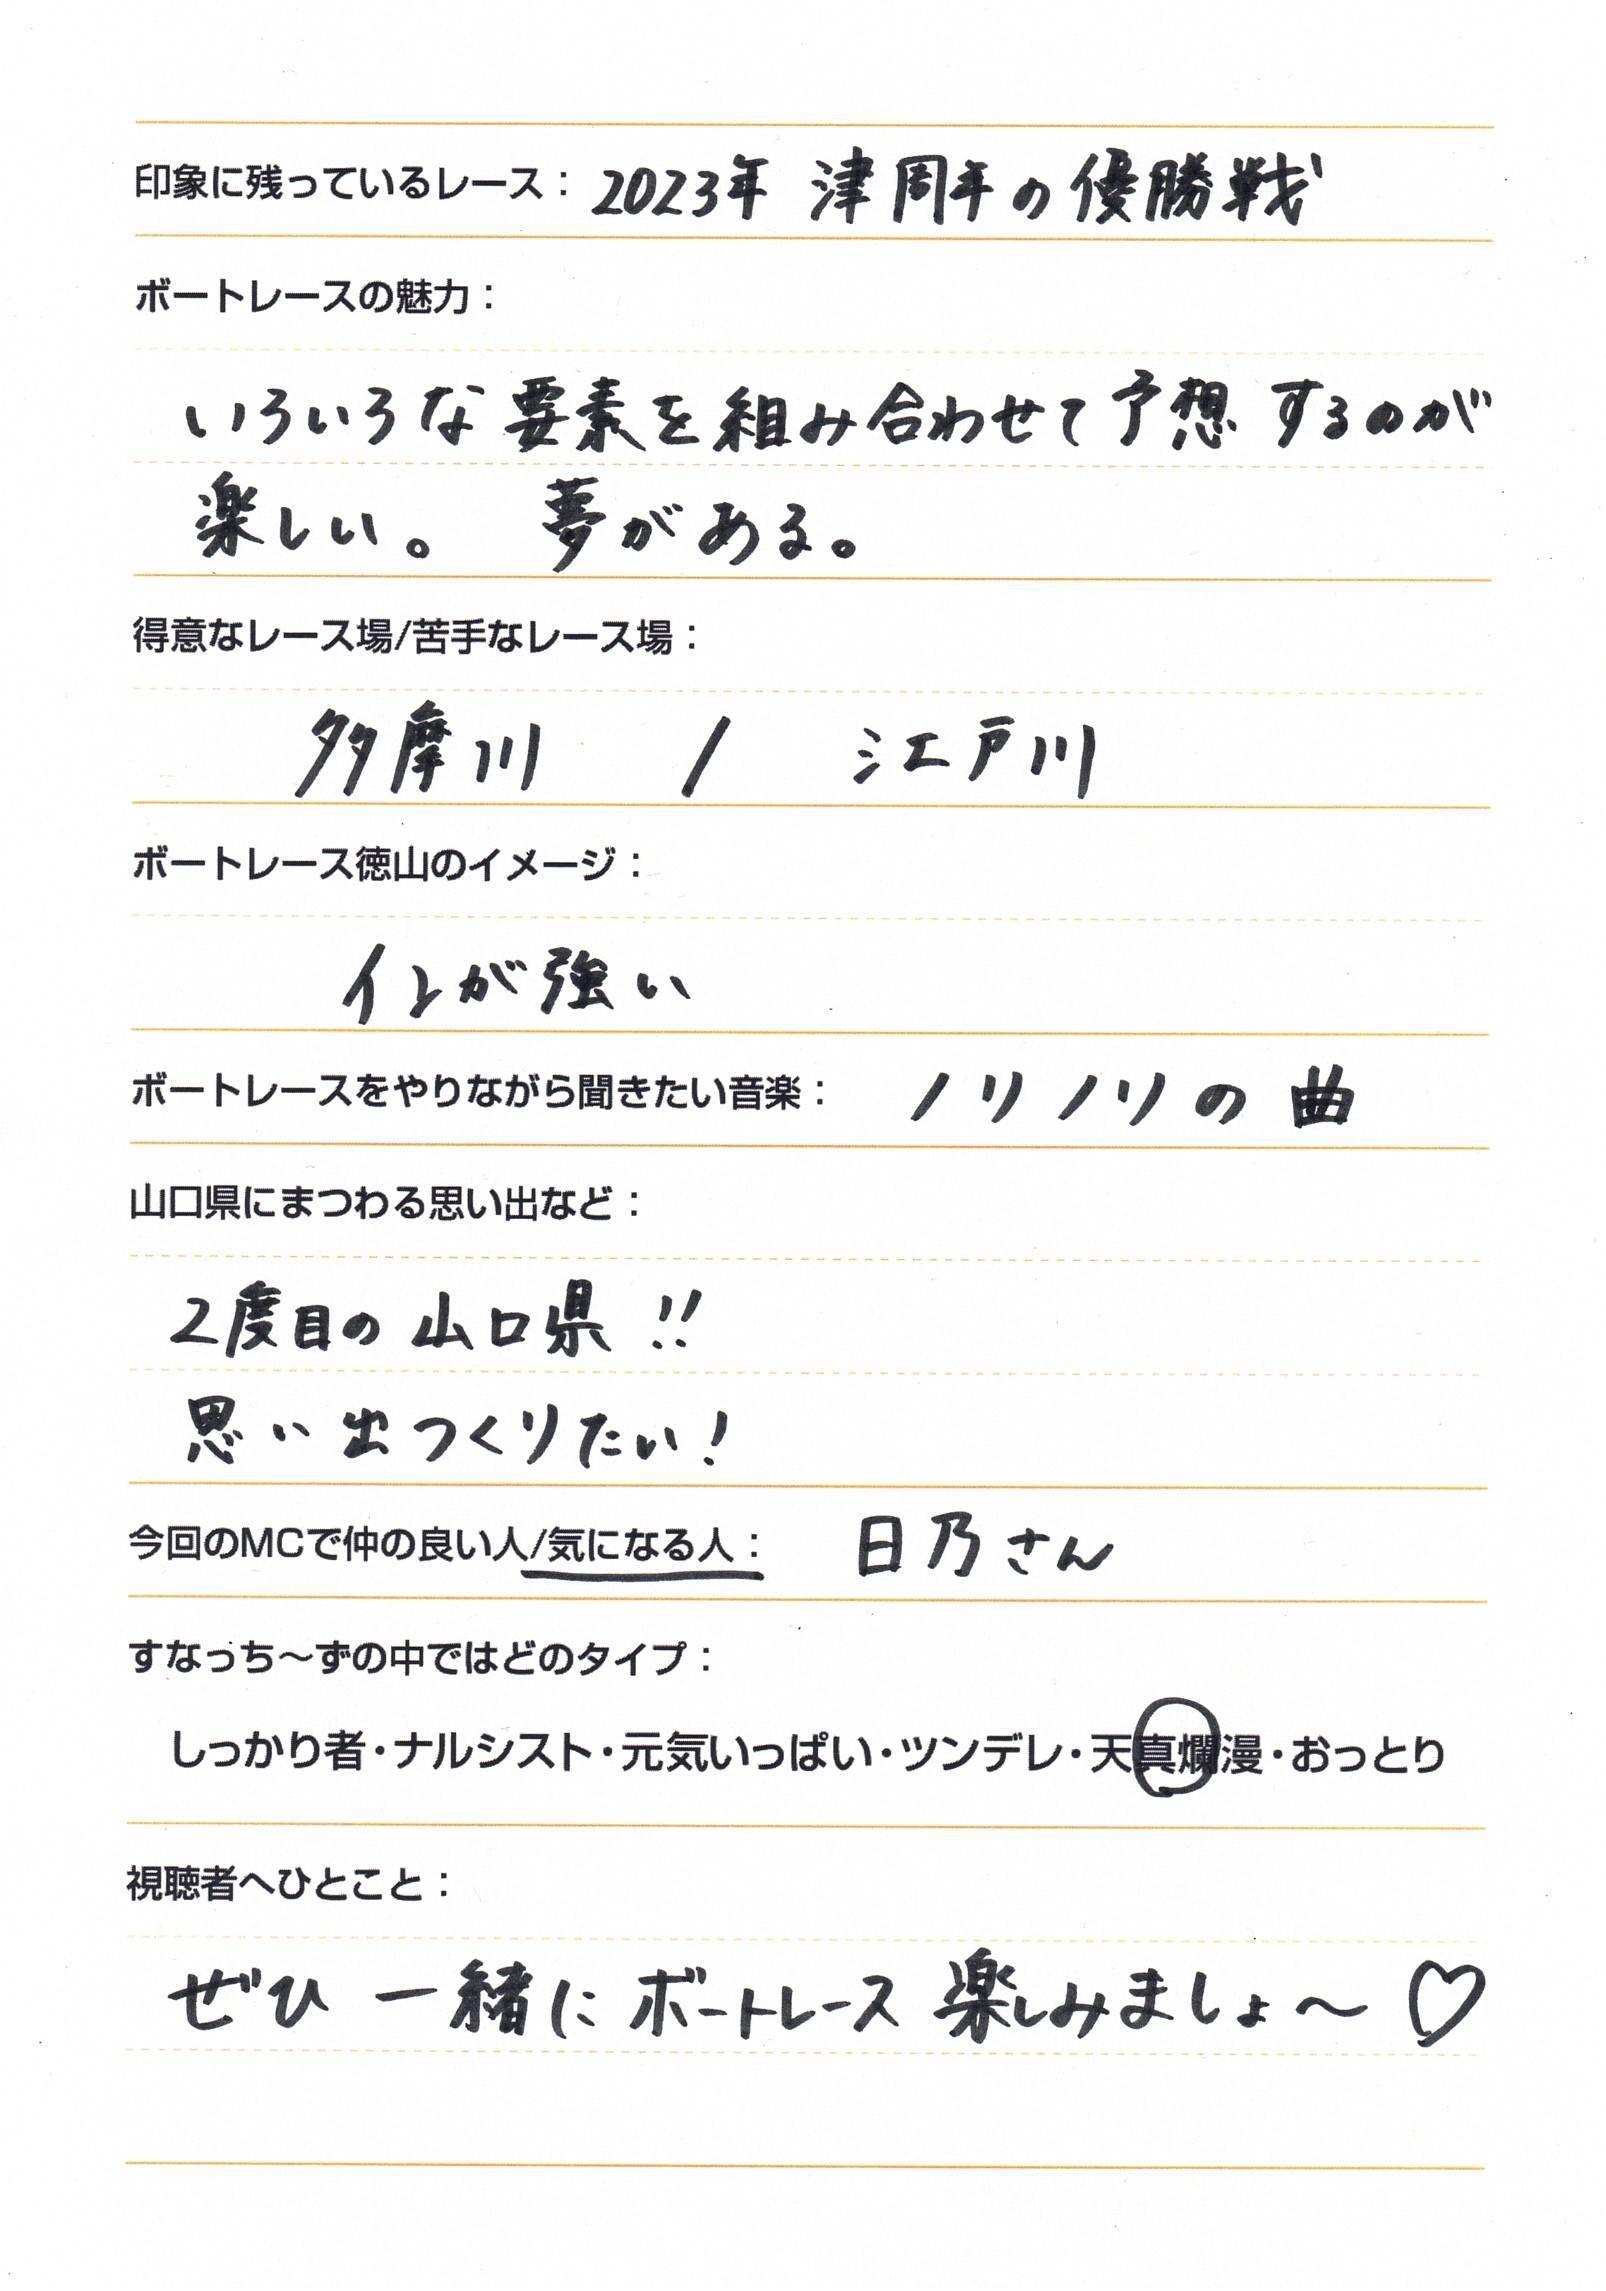 印象に残っているレース： 2023年 津周年の優勝戦
ボートレースの魅力：
いろいろな要素を組み合わせて予想するのが
楽しい。 夢がある。
得意なレース場/苦手なレース場：
多摩川 / 江戸川
ボートレース徳山のイメージ：
インが強い
ボートレースをやりながら聞きたい音楽： ノリノリの曲
山口県にまつわる思い出など：
2度目の山口県!!
思い出つくりたい!
今回のMCで仲の良い人/気になる人： 日乃さん
すなっち～ずの中ではどのタイプ：
しっかり者・ナルシスト・元気いっぱい・ツンデレ・天真爛漫・おっとり
視聴者へひとこと：
ぜひ一緒にボートレース楽しみましょ～♡